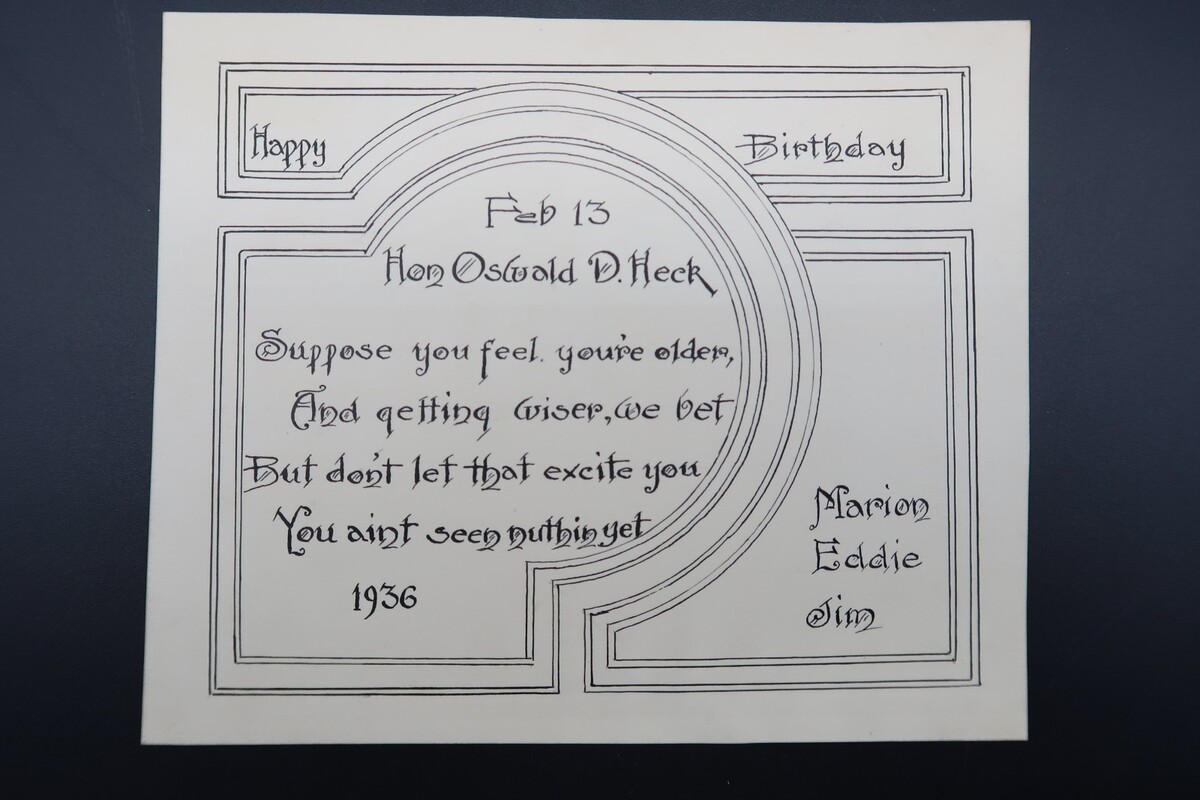 Happy Birthday
Feb 13
Hon Oswald D. Heck
Suppose you feel. you're older,
And getting wiser, we bet
But don't let that excite you
You aint seen nuthin yet
1936
Marion
Eddie
Jim